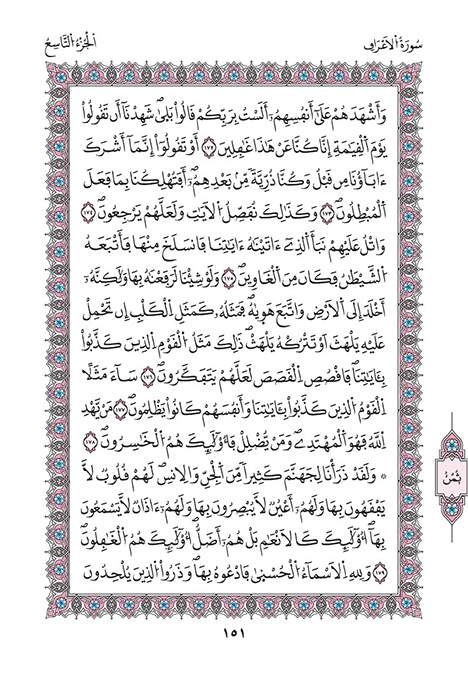 سُورَةُ الْأَعْرَافِ
الْجُزْءُ التَّاسِعُ
وَأَشْهَدَهُمْ عَلَىٰ أَنفُسِهِمُۥٓ أَلَسْتُ بِرَبِّكُمْ قَالُواْ بَلَىٰ شَهِدْنَآ أَن تَقُولُواْ
يَوْمَ الْقِيَٰمَةِ إِنَّا كُنَّا عَنْ هَٰذَا غَٰفِلِينَ ١٧٢ أَوْ تَقُولُوٓاْ إِنَّمَآ أَشْرَكَ
ءَابَآؤُنَا مِن قَبْلُ وَكُنَّا ذُرِّيَّةً مِّنۢ بَعْدِهِمُۥٓ أَفَتُهْلِكُنَا بِمَا فَعَلَ
الْمُبْطِلُونَ ١٧٣ وَكَذَٰلِكَ نُفَصِّلُ الْأٓيَٰتِ وَلَعَلَّهُمْ يَرْجِعُونَ ١٧٤
وَاتْلُ عَلَيْهِمْ نَبَأَ الَّذِےٓ ءَاتَيْنَٰهُ ءَايَٰتِنَا فَانسَلَخَ مِنْهَا فَأَتْبَعَهُ
الشَّيْطَٰنُ فَكَانَ مِنَ الْغَاوِينَ ١٧٥ وَلَوْ شِئْنَا لَرَفَعْنَٰهُ بِهَا وَلَٰكِنَّهُۥٓ
أَخْلَدَ إِلَى الْأَرْضِ وَاتَّبَعَ هَوَيٰهُ فَمَثَلُهُۥ كَمَثَلِ الْكَلْبِ إِن تَحْمِلْ
عَلَيْهِ يَلْهَثْ أَوْ تَتْرُكْهُ يَلْهَث ذَّٰلِكَ مَثَلُ الْقَوْمِ الَّذِينَ كَذَّبُواْ
بِـَٔايَٰتِنَا فَاقْصُصِ الْقَصَصَ لَعَلَّهُمْ يَتَفَكَّرُونَ ١٧٦ سَآءَ مَثَلًا
الْقَوْمُ الَّذِينَ كَذَّبُواْ بِـَٔايَٰتِنَا وَأَنفُسَهُمْ كَانُواْ يَظْلِمُونَ ١٧٧ مَنْ يَّهْدِ
اللَّهُ فَهُوَ الْمُهْتَدِے وَمَنْ يُّضْلِلْ فَأُوْلَٰٓئِكَ هُمُ الْخَٰسِرُونَ ١٧٨
* وَلَقَدْ ذَرَأْنَا لِجَهَنَّمَ كَثِيرًا مِّنَ الْجِنِّ وَالْإِنسِ لَهُمْ قُلُوبٌ لَّا
يَفْقَهُونَ بِهَا وَلَهُمُۥٓ أَعْيُنٌ لَّا يُبْصِرُونَ بِهَا وَلَهُمُۥٓ ءَاذَانٌ لَّا يَسْمَعُونَ
بِهَآ أُوْلَٰٓئِكَ كَالْأَنْعَٰمِ بَلْ هُمُۥٓ أَضَلُّ أُوْلَٰٓئِكَ هُمُ الْغَٰفِلُونَ
١٧٩ وَلِلهِ الْأَسْمَآءُ الْحُسْنَىٰ فَادْعُوهُ بِهَا وَذَرُواْ الَّذِينَ يُلْحِدُونَ
ثُمُنٌ
١٥١